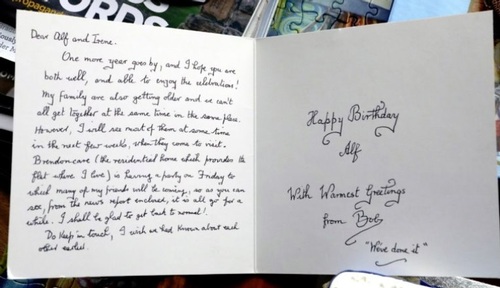 Dear Alf and Irene.
One more year goes by, and I hope you are
both well, and able to enjoy the celebrations!
My family are also getting older and we can't
all get together at the same time in the same place.
However, I will see most of them at some time
in the next few weeks, when they come to visit.
Brendoncare (the residential home which provides the
flat where I live) is having a party on Friday to
which many of my friends will be coming, so as you can
see, from the news report enclosed, it is all go for a
while. I shall be glad to get back to normal!
Do keep in touch, I wish we had known about each
other earlier.
Happy Birthday
Alf
With Warmest Greetings
from Bob
"We've done it"